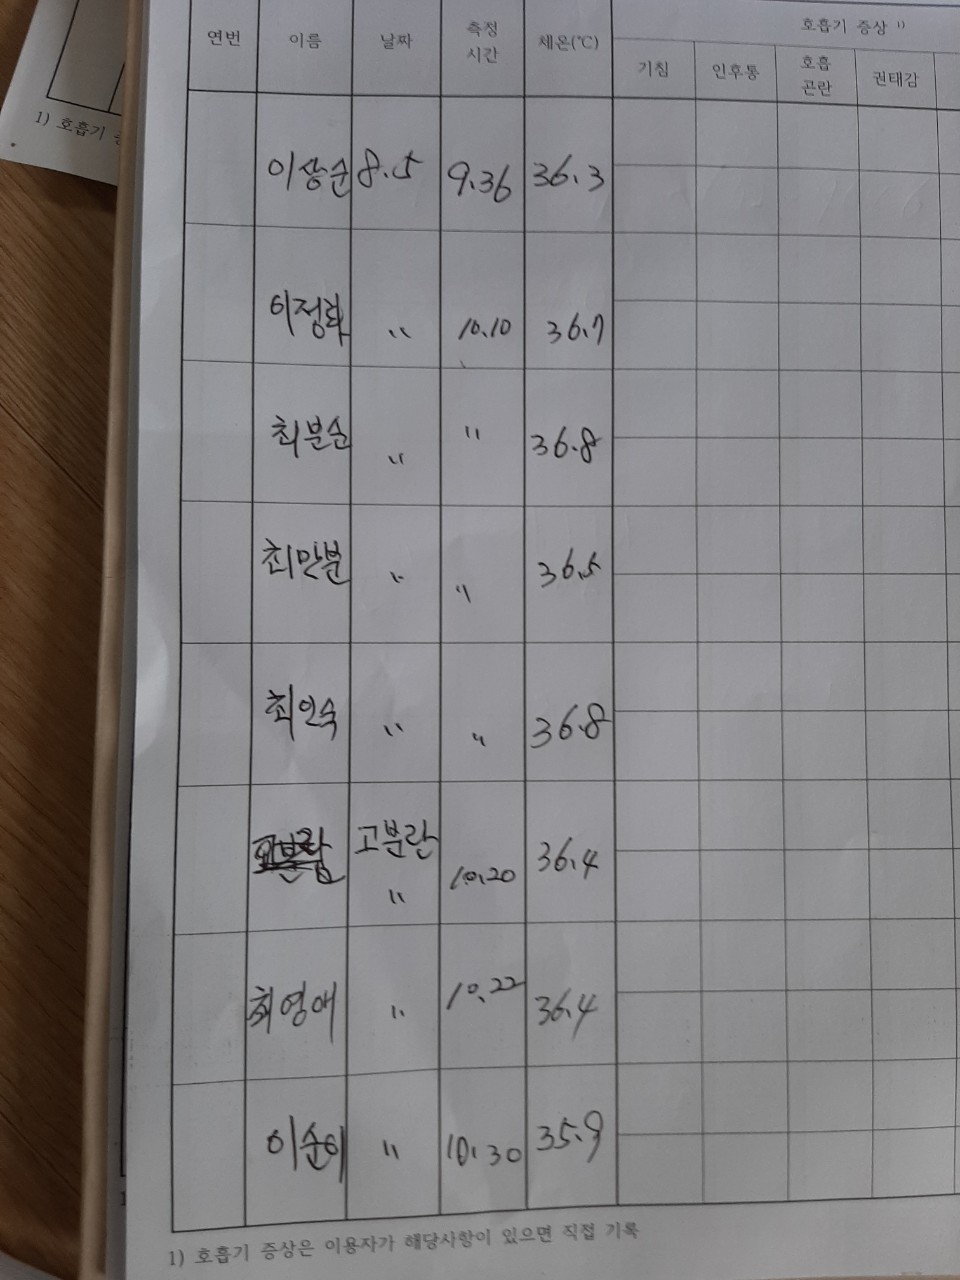 연번 이름 날짜 측정 시간 체온(℃) 호흡기 증상 1)
기침 인후통 호흡 곤란 권태감
1) 호흡기
이상순 8.5 9.36 36.3
이정화 〃 10.10 36.7
최분순 〃 〃 36.8
최만분 〃 〃 36.5
최인숙 〃 〃 36.8
고분란 〃 10.20 36.4
최영애 〃 10.22 36.4
이순이 〃 10.30 35.9
1) 호흡기 증상은 이용자가 해당사항이 있으면 직접 기록